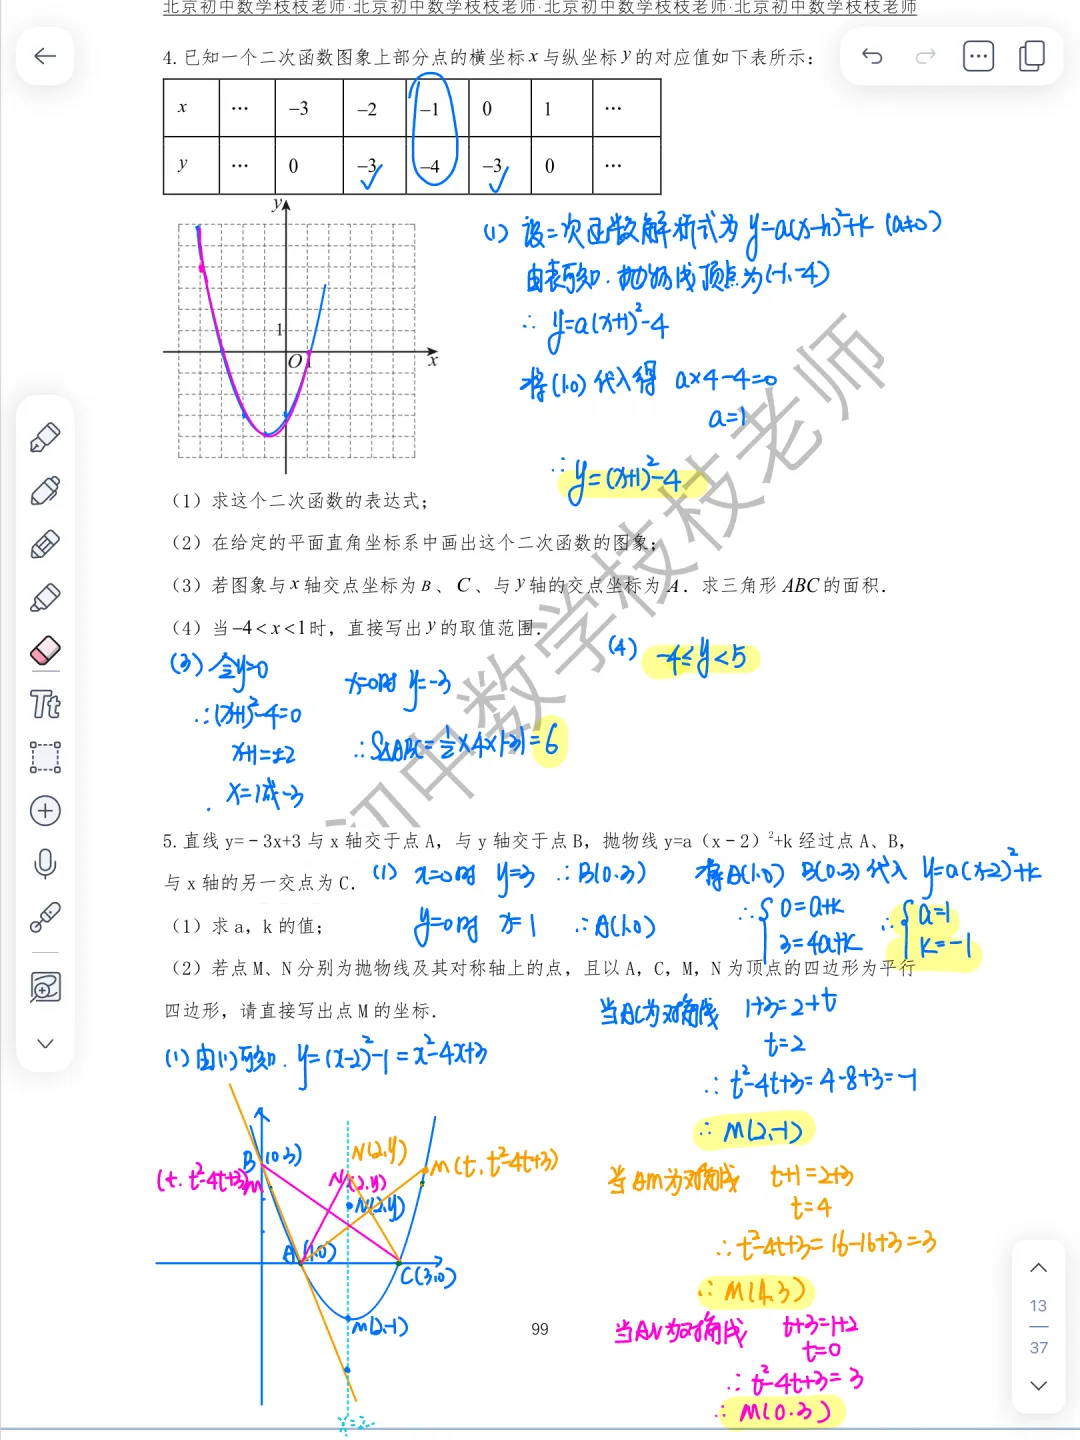 北京初中数学枝枝老师·北京初中数学枝枝老师·北京初中数学枝枝老师·北京初中数学枝枝老师
4.已知一个二次函数图象上部分点的横坐标x与纵坐标y的对应值如下表所示:
x … -3 -2 -1 0 1 …
y … 0 -3 -4 -3 0 …
y
1
O 1 x
(1) 设二次函数解析式为 y=a(x-h)²+k (a≠0)
由表可知.抛物线顶点为(-1,-4)
∴ y=a(x+1)²-4
将(1.0)代入得 a×4-4=0
a=1
∴ y=(x+1)²-4
(1)求这个二次函数的表达式;
(2)在给定的平面直角坐标系中画出这个二次函数的图象;
(3)若图象与x轴交点坐标为B、C、与y轴的交点坐标为A.求三角形ABC的面积.
(4)当-4<x<1时,直接写出y的取值范围.
(3) 令y=0
∴(x+1)²-4=0
x+1=±2
x=1或-3
x=0时 y=-3
∴S△ABC=½×4×|-3|=6
(4) -4≤y<5
初中数学枝枝老师
5.直线y=-3x+3与x轴交于点A,与y轴交于点B,抛物线y=a(x-2)²+k经过点A、B,
与x轴的另一交点为C.
(1) x=0时 y=3 ∴B(0.3)
y=0时 x=1 ∴A(1.0)
将A(1.0) B(0.3)代入 y=a(x-2)²+k
∴{0=a+k
3=4a+k
∴{a=1
k=-1
(1)求a,k的值;
(2)若点M、N分别为抛物线及其对称轴上的点,且以A,C,M,N为顶点的四边形为平行
四边形,请直接写出点M的坐标.
(1)由(1)可知. y=(x-2)²-1=x²-4x+3
当AC为对角线 1+3=2+t
t=2
∴t²-4t+3=4-8+3=-1
∴M(2,-1)
当AM为对角线 t+1=2+3
t=4
∴t²-4t+3=16-16+3=3
∴M(4,3)
当AN为对角线 t+3=1+2
t=0
∴t²-4t+3=3
∴M(0.3)
B (0.3)
(t. t²-4t+3)M
N(2,y)
N (2,y)
N(2,y)
M(t, t²-4t+3)
A (1,0)
C(3,0)
M(2,-1)
x=2
99
Tt
13
37